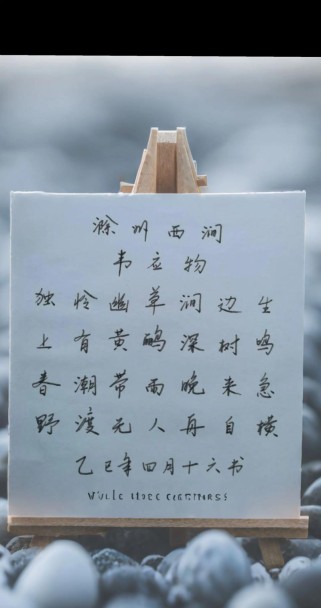 滁州西涧
韦应物
独怜幽草涧边生
上有黄鹂深树鸣
春潮带雨晚来急
野渡无人舟自横
乙巳年四月十六书